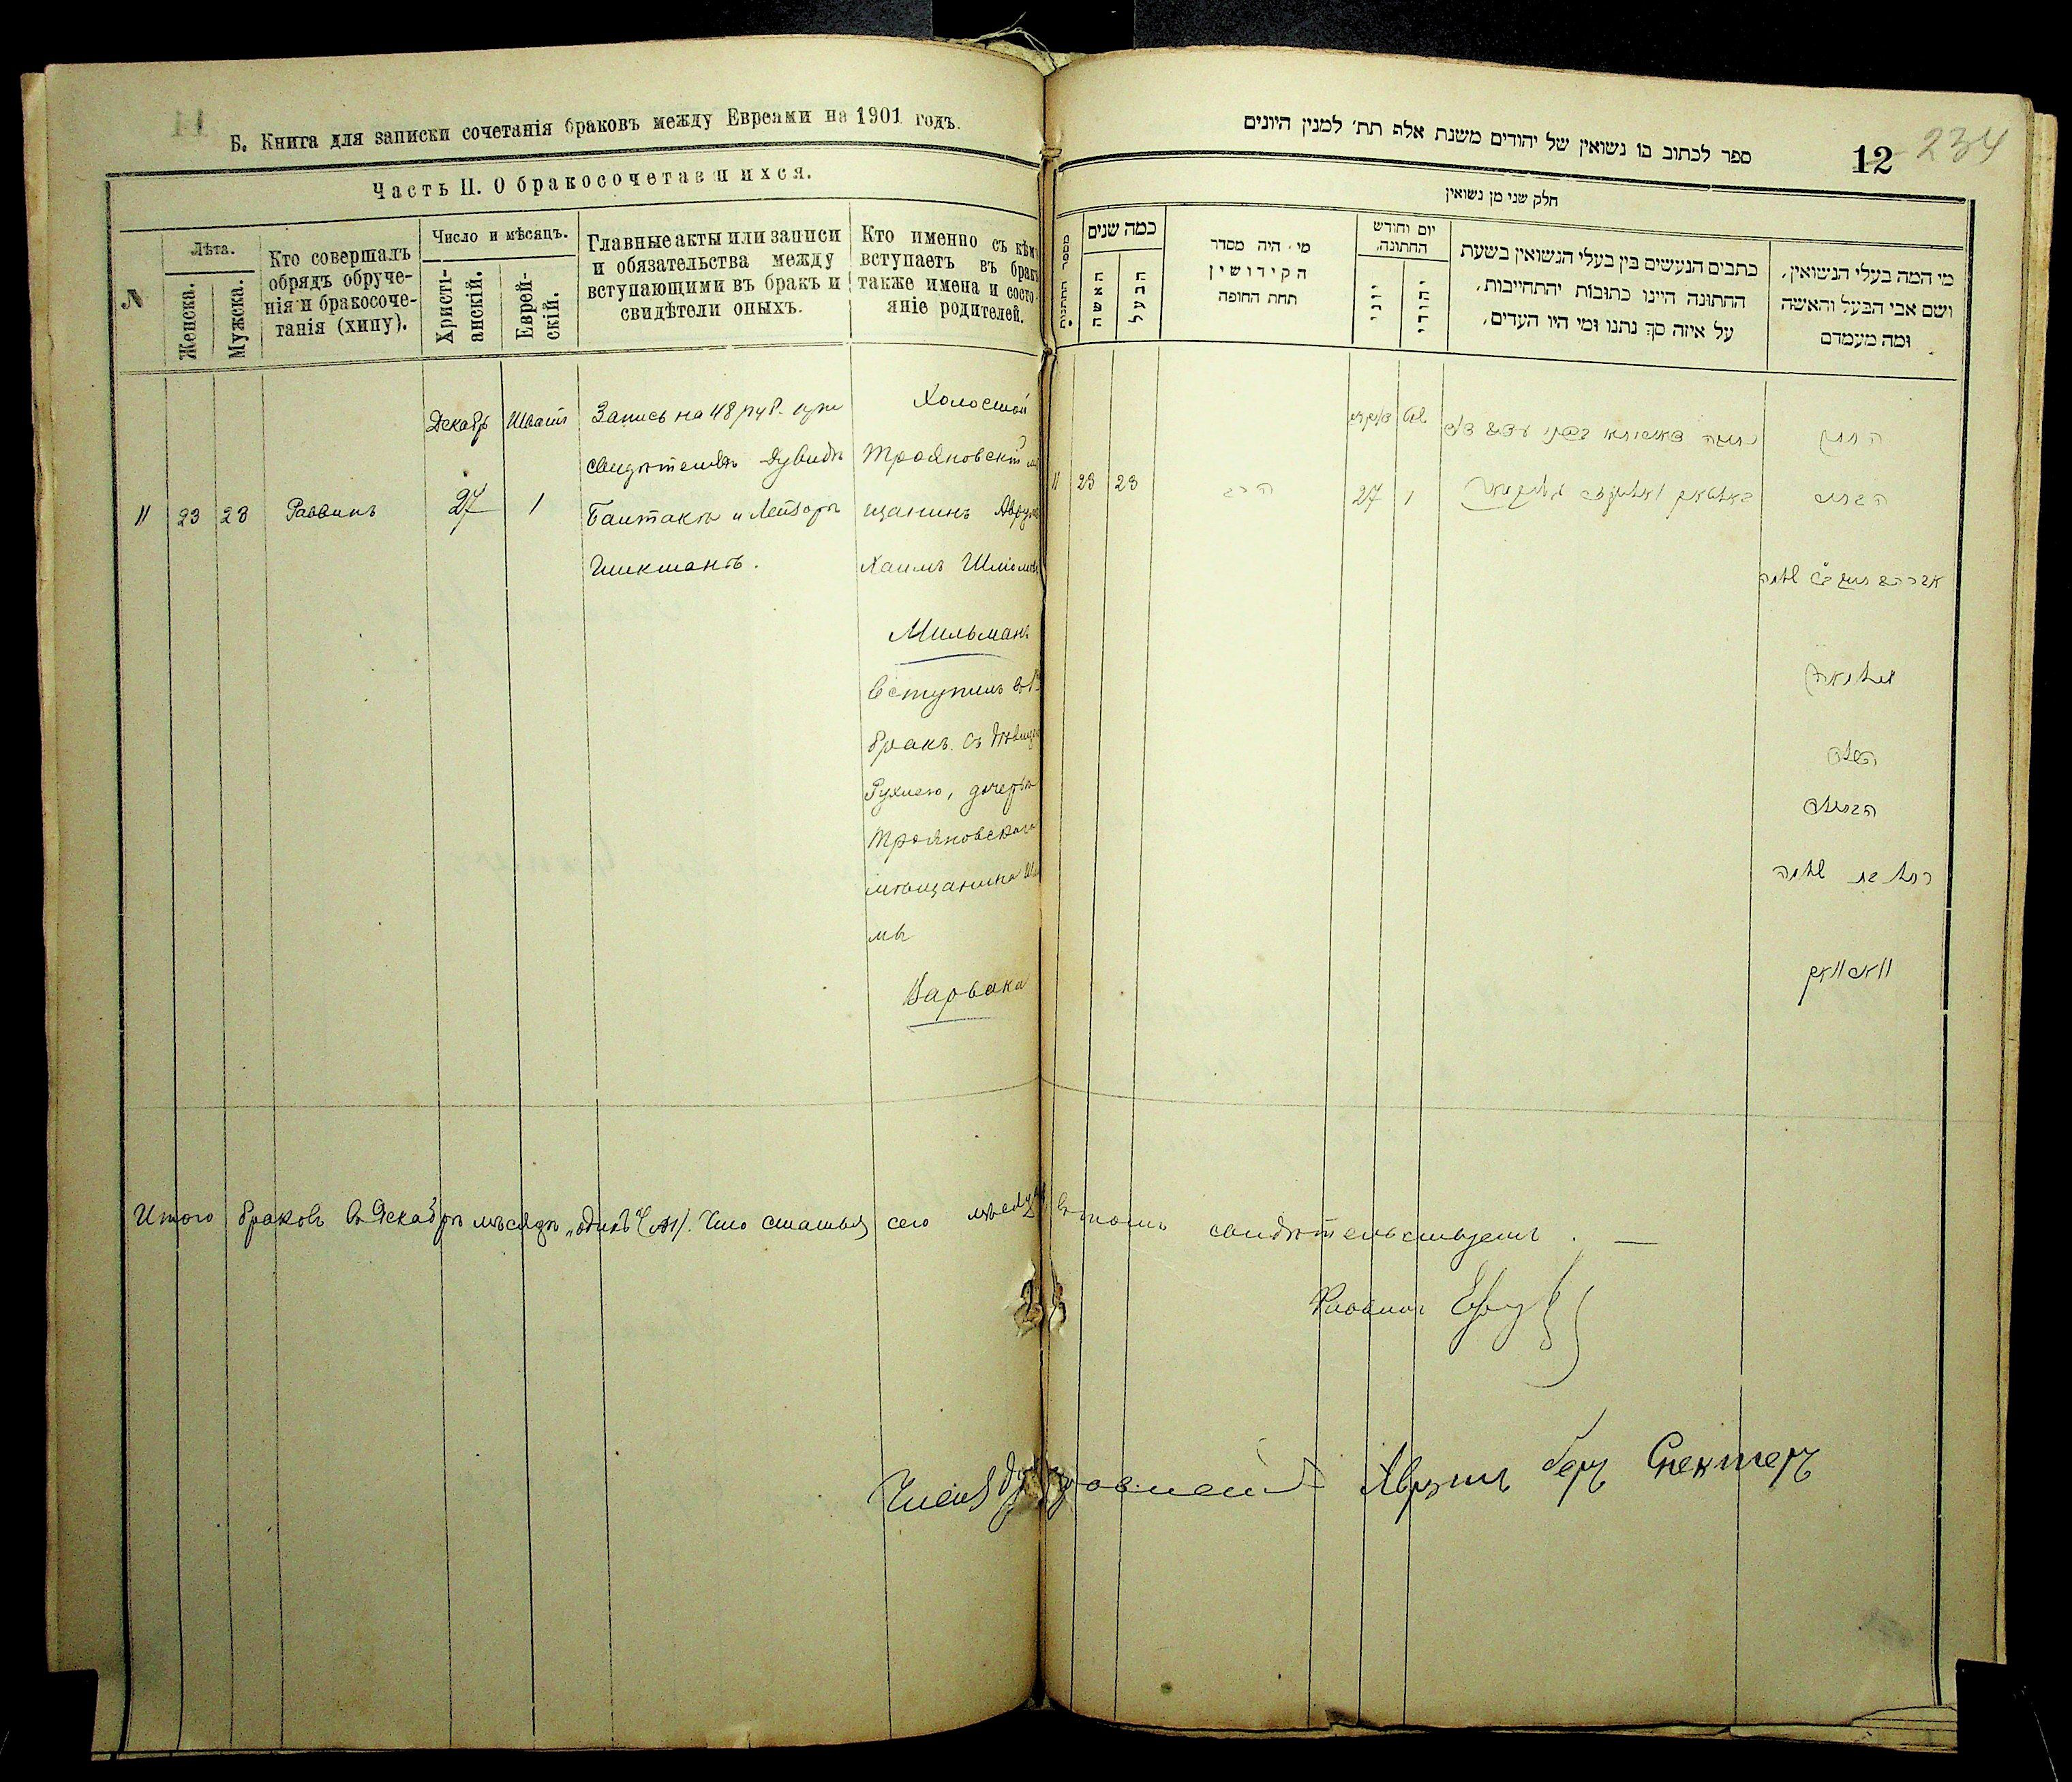 Б. Книга для записки сочетанія браковъ между Евреями на 1901 годъ.
Часть II. О бракосочетавшихся.
№
Лѣта.
Женска.
Мужска.
Кто совершалъ
обрядъ обруче-
нія и бракосоче-
танія (хипу).
Число и мѣсяцъ.
Христі-
анскій.
Еврей-
скій.
Главные акты или записи
и обязательства между
вступающими въ бракъ и
свидѣтели оныхъ.
Кто именно съ кѣмъ
вступаетъ въ бракъ
также имена и состо-
яніе родителей.
11
23
23
Раввинъ
Декабр
27
Шватъ
1
Запись на 48 руб. при
свидѣтеляхъ Дувидъ
Балтакъ и Лейзоръ
Чикманъ.
Холостой
Трояновскій мѣ
щанинъ Аврумъ
Хаимъ Шліомовъ
Мильманъ
вступилъ въ 1й
бракъ съ дѣвицею
Рухлею, дочерью
Трояновскаго
мѣщанина Шлі
мы
Варвака
Итого браковъ въ Декабрѣ мѣсяцѣ „одинъ“ (№1). Что статья сего мѣсяца вѣрна въ томъ свидѣтельствуемъ. —
Раввинъ
Членъ Дух. правленія Аврумъ Беръ Спекторъ
234
12
ספר לכתוב בו נשואין של יהודים משנת אלף תת׳ למנין היונים
חלק שני מן נשואין
מספר החתונות
כמה שנים
האשה
הבעל
מי היה מסדר
הקידושין
תחת החופה
יום וחודש
החתונה.
יוני
יהודי
כתבים הנעשים בין בעלי הנשואין בשעת
החתונה היינו כתובות והתחייבות,
על איזה סך נתנו ומי היו העדים,
מי המה בעלי הנשואין,
ושם אבי הבעל והאשה
ומה מעמדם
11
23
23
הרב
דעקאבר
27
שבט
1
החתן
הבחור
אברהם חיים ב׳ שלמה
מילמאן
הכלה
הבתולה
רחל בת שלמה
וואסוואק